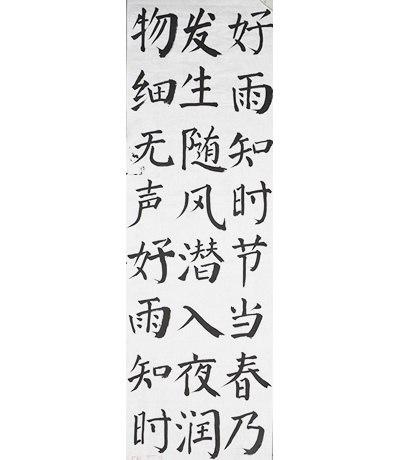 好雨知时节当春乃
发生随风潜入夜润
物细无声好雨知时